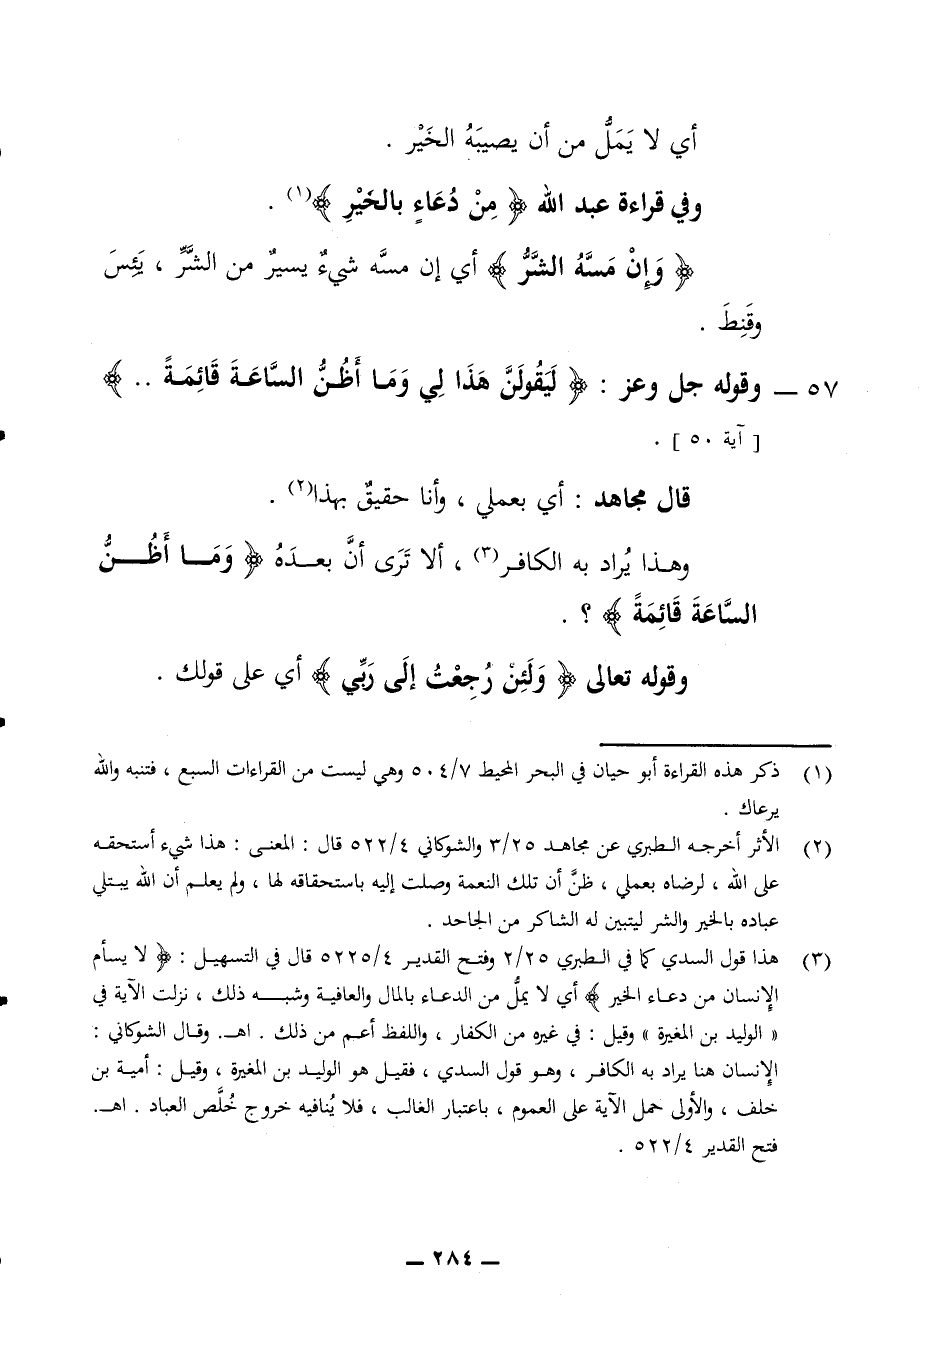 أي لا يَمَلُّ من أن يصيبَهُ الخَيْر .
وفي قراءة عبد الله ﴿ مِنْ دُعَاءٍ بالخَيْرِ ﴾(١) .
﴿ وَإِنْ مَسَّهُ الشَّرُّ ﴾ أي إن مسَّه شيءٌ يسيرٌ من الشَّرِّ ، يَئِسَ
وقَنِطَ .
٥٧ ــ وقوله جل وعز : ﴿ لَيَقُولَنَّ هَذَا لِي وَمَا أَظُنُّ السَّاعَةَ قَائِمَةً .. ﴾
[ آية ٥٠ ] .
قال مجاهد : أي بعملي ، وأنا حقيقٌ بهذا(٢) .
وهذا يُراد به الكافر(٣) ، ألا تَرَى أنَّ بعدَهُ ﴿ وَمَا أَظُنُّ
السَّاعَةَ قَائِمَةً ﴾ ؟ .
وقوله تعالى ﴿ وَلَئِنْ رُجِعْتُ إلَى رَبِّي ﴾ أي على قولك .
(١) ذكر هذه القراءة أبو حيان في البحر المحيط ٥٠٤/٧ وهي ليست من القراءات السبع ، فتنبه والله
يرعاك .
(٢) الأثر أخرجه الطبري عن مجاهد ٣/٢٥ والشوكاني ٥٢٢/٤ قال : المعنى : هذا شيء أستحقه
على الله ، لرضاه بعملي ، ظنَّ أن تلك النعمة وصلت إليه باستحقاقه لها ، ولم يعلم أن الله يبتلي
عباده بالخير والشر ليتبين له الشاكر من الجاحد .
(٣) هذا قول السدي كما في الطبري ٢/٢٥ وفتح القدير ٥٢٢٥/٤ قال في التسهيل : ﴿ لا يسأم
الإنسان من دعاء الخير ﴾ أي لا يملُّ من الدعاء بالمال والعافية وشبه ذلك ، نزلت الآية في
« الوليد بن المغيرة » وقيل : في غيره من الكفار ، واللفظ أعم من ذلك . اهـ. وقال الشوكاني :
الإنسان هنا يراد به الكافر ، وهو قول السدي ، فقيل هو الوليد بن المغيرة ، وقيل : أمية بن
خلف ، والأولى حمل الآية على العموم ، باعتبار الغالب ، فلا يُنافيه خروج خُلَّص العباد . اهـ.
فتح القدير ٥٢٢/٤ .
ــ ٢٨٤ ــ